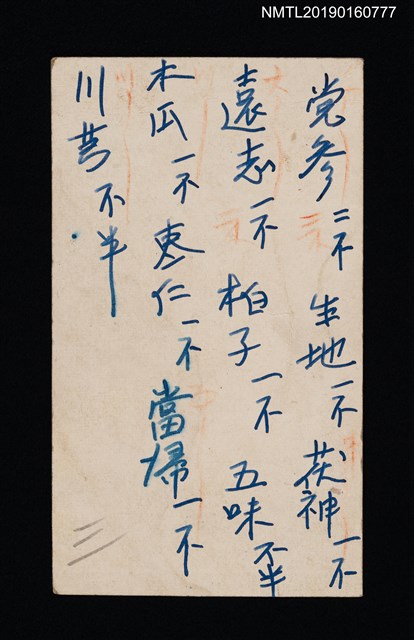 NMTL20190160777
党参二不 生地一不 茯神一不
遠志一不 柏子一不 五味不半
木瓜一不 枣仁一不 當帰一不
川芎不半
三